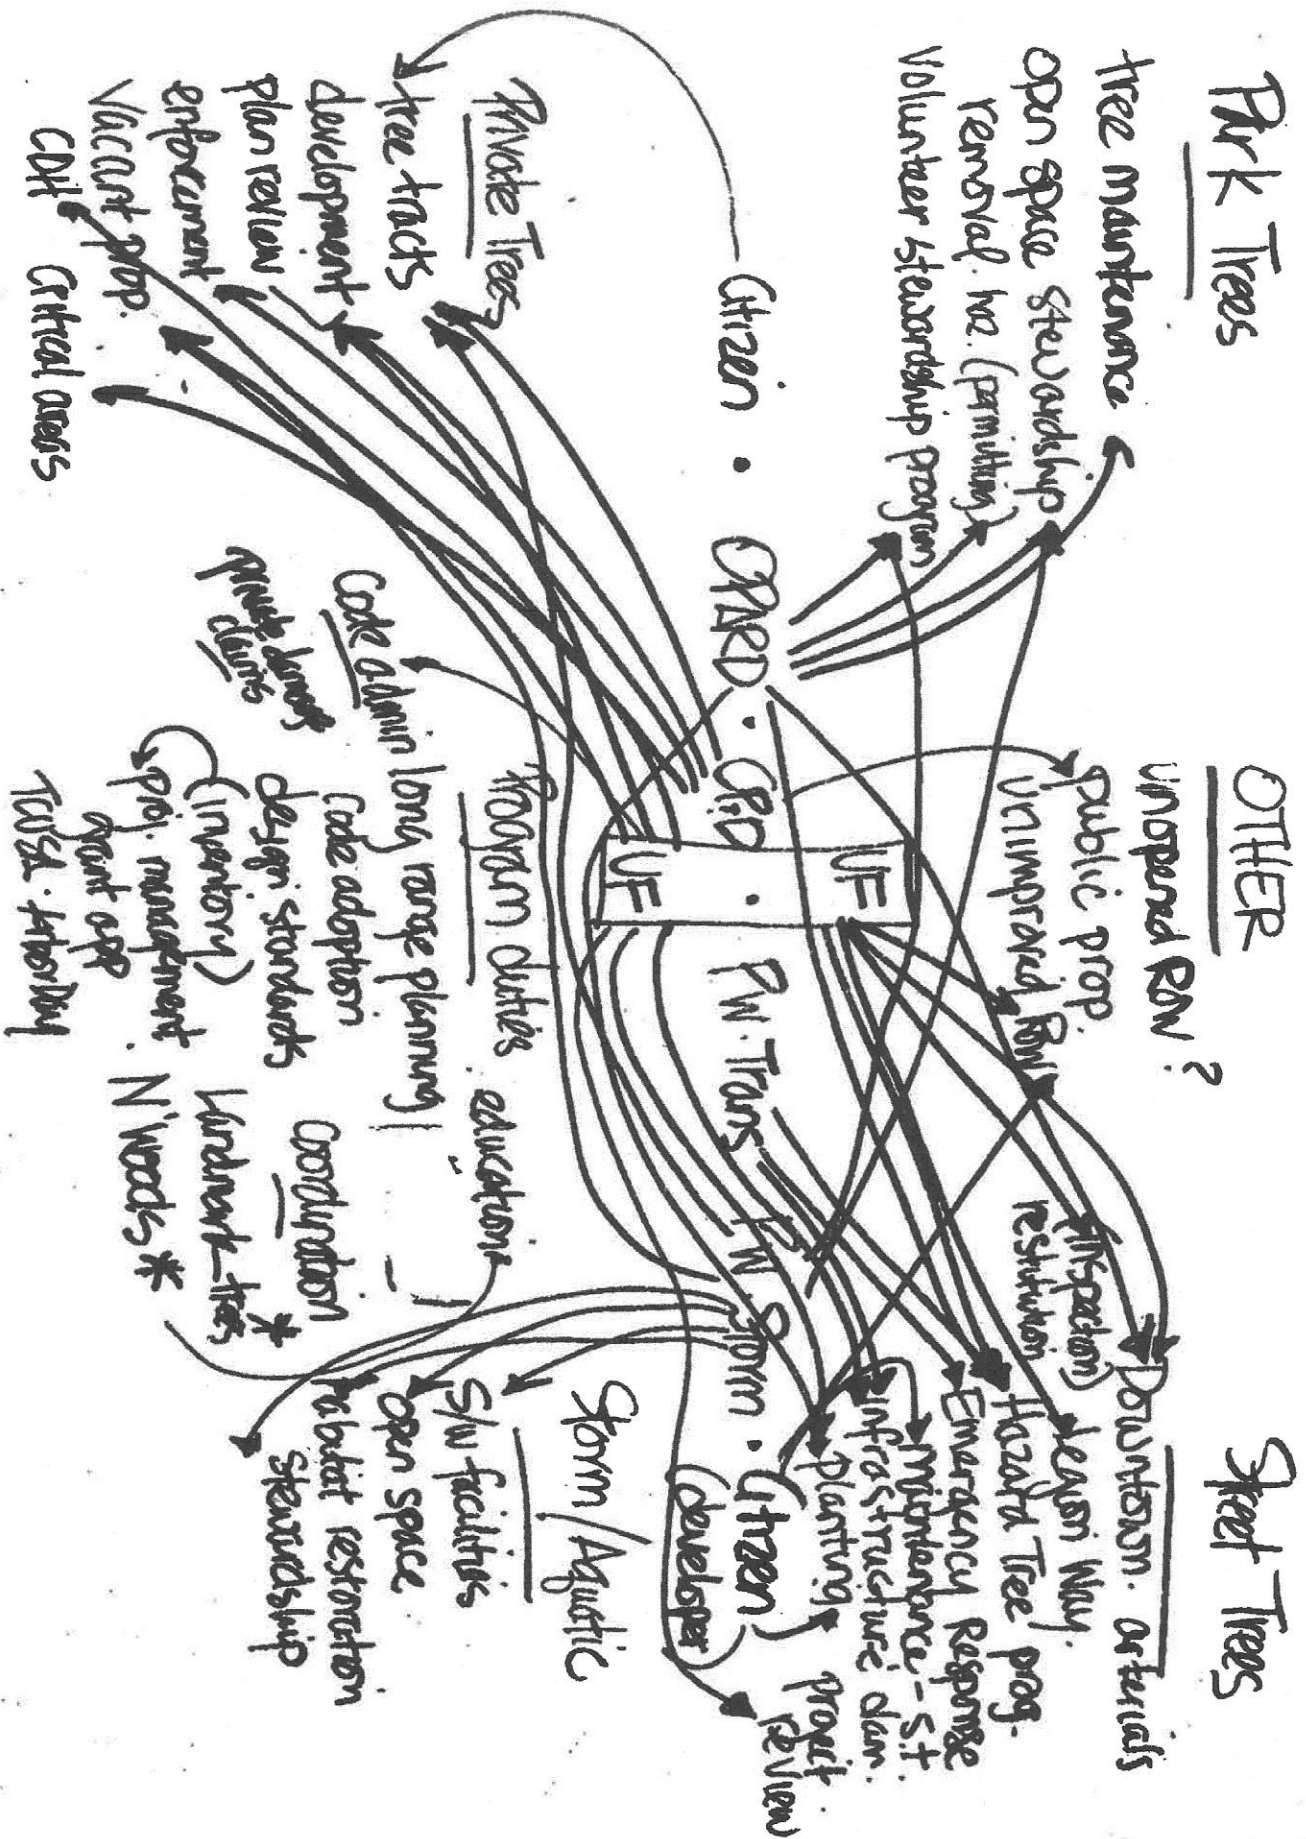 Park Trees
tree maintenance
open space stewardship
removal. haz. (permitting)
Volunteer stewardship program
OTHER
unopened ROW ?
public prop.
Unimproved ROW
Street Trees
Downtown. arterials
Legion Way.
Hazard Tree prog.
Emergency Response
Maintenance - s.t.
infrastructure dam.
planting
(inspection)
restitution
Citizen • OPARD • CP&D • PW. Trans PW. Storm • (Citizen)
(developer)
UF
UF
project
review
Private Trees
tree tracts
development
plan review
enforcement
Vacant prop.
CDH Critical areas
Code admin
Program duties
long range planning
code adoption
design standards
(inventory)
proj. management
grant app
TCUSA. Arbor Day
education
Coordination
Landmark trees *
N'Woods *
Storm/Aquatic
S/W facilities
open space
habitat restoration
stewardship